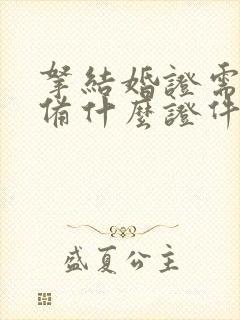 拏結婚證需
備什麼證件
盛夏公主